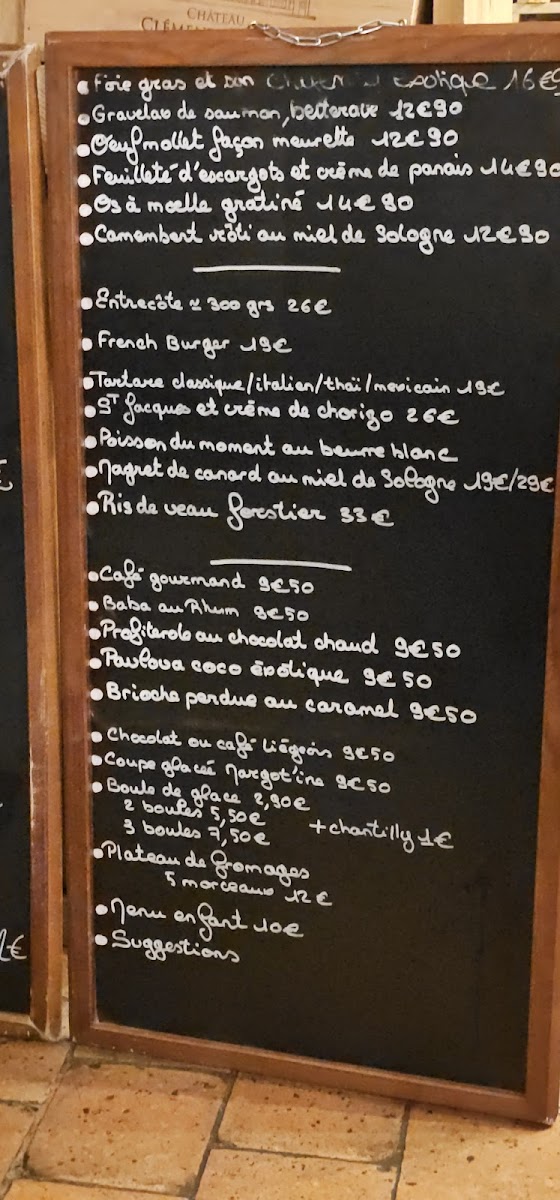 CHÂTEAU
Foie gras et son exotique 16€
Gravelax de saumon, betterave 12€90
Oeuf mollet façon meurette 12€90
Feuilleté d'escargots et crème de panais 14€90
Os à moelle gratiné 14€90
Camembert rôti au miel de Sologne 12€90
Entrecôte ≃ 300 grs 26€
French Burger 19€
Tartare classique/italien/thaï/mexicain 19€
St Jacques et crème de chorizo 26€
Poisson du moment au beurre blanc
Magret de canard au miel de Sologne 19€/29€
Ris de veau forestier 33€
Café gourmand 9€50
Baba au Rhum 9€50
Profiterole au chocolat chaud 9€50
Pavlova coco éxotique 9€50
Brioche perdue au caramel 9€50
Chocolat ou café liégeois 9€50
Coupe glacée Margot'ine 9€50
Boule de glace 2,90€
2 boules 5,50€
3 boules 7,50€
+chantilly 1€
Plateau de fromages
5 morceaux 12€
Menu enfant 10€
Suggestions